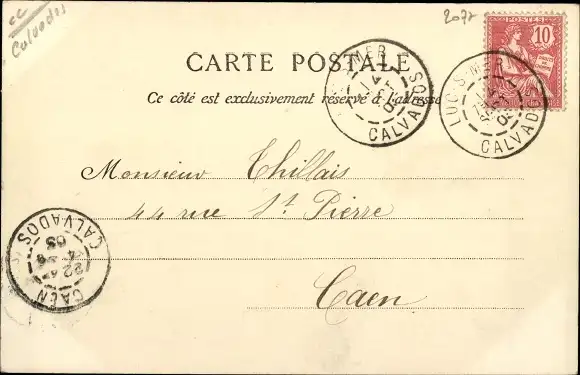 cc
Calvados
2077
CARTE POSTALE
Ce côté est exclusivement réservé à l'adresse
POSTES
10
LUC-S-MER
CALVADOS
LUC-S-MER
CALVADOS
Monsieur Thillais
44 rue St. Pierre
Caen
CAEN
22
4
03
CALVADOS